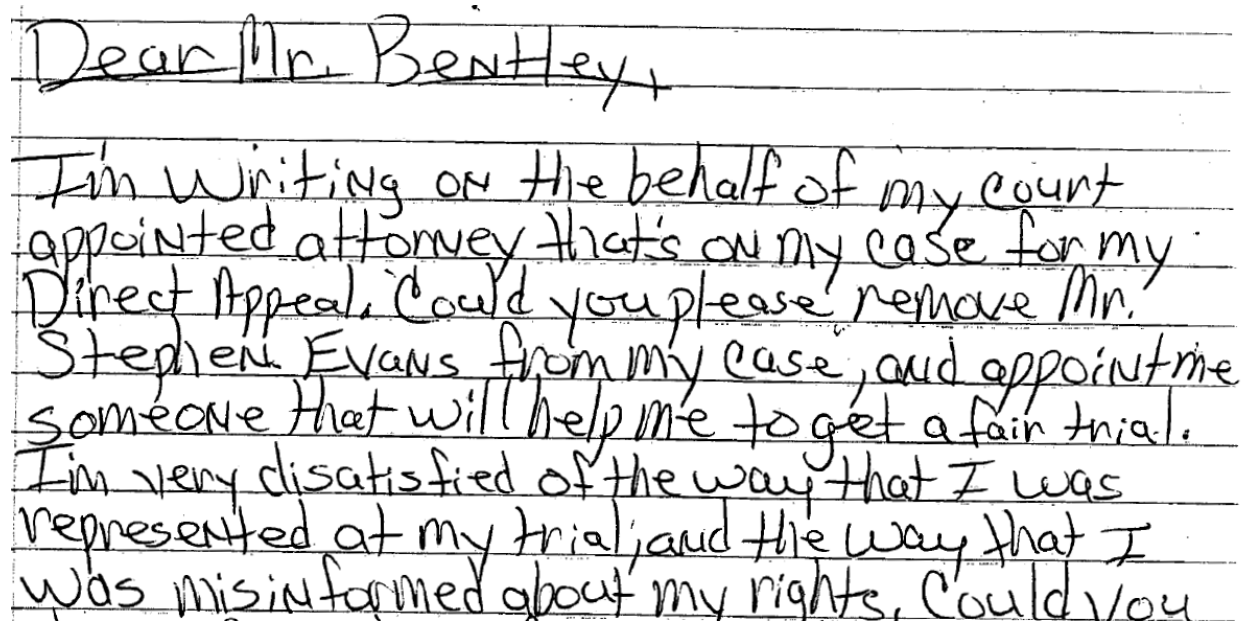 Dear Mr. Bentley,
I'm writing on the behalf of my court
appointed attorney that's on my case for my
Direct Appeal. Could you please remove Mr.
Stephen Evans from my case, and appoint me
someone that will help me to get a fair trial.
I'm very disatisfied of the way that I was
represented at my trial, and the way that I
was misinformed about my rights. Could you